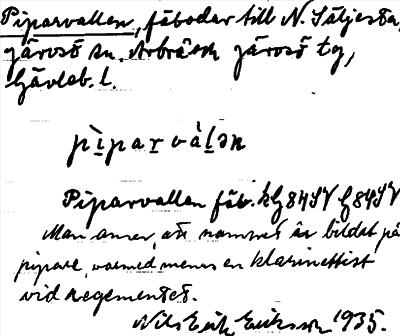 Piparvallen, fäbodar till N. Säljesta,
Järvsö sn. Arbrå och Järvsö tg,
Gävleb. l.
pìparvàlən
Piparvallen fäb. kG84SV G84SV
Man anser, att namnet är bildat på
pipare, varmed menas en klarinettist
vid regementet.
Nils Erik Eriksson 1935.